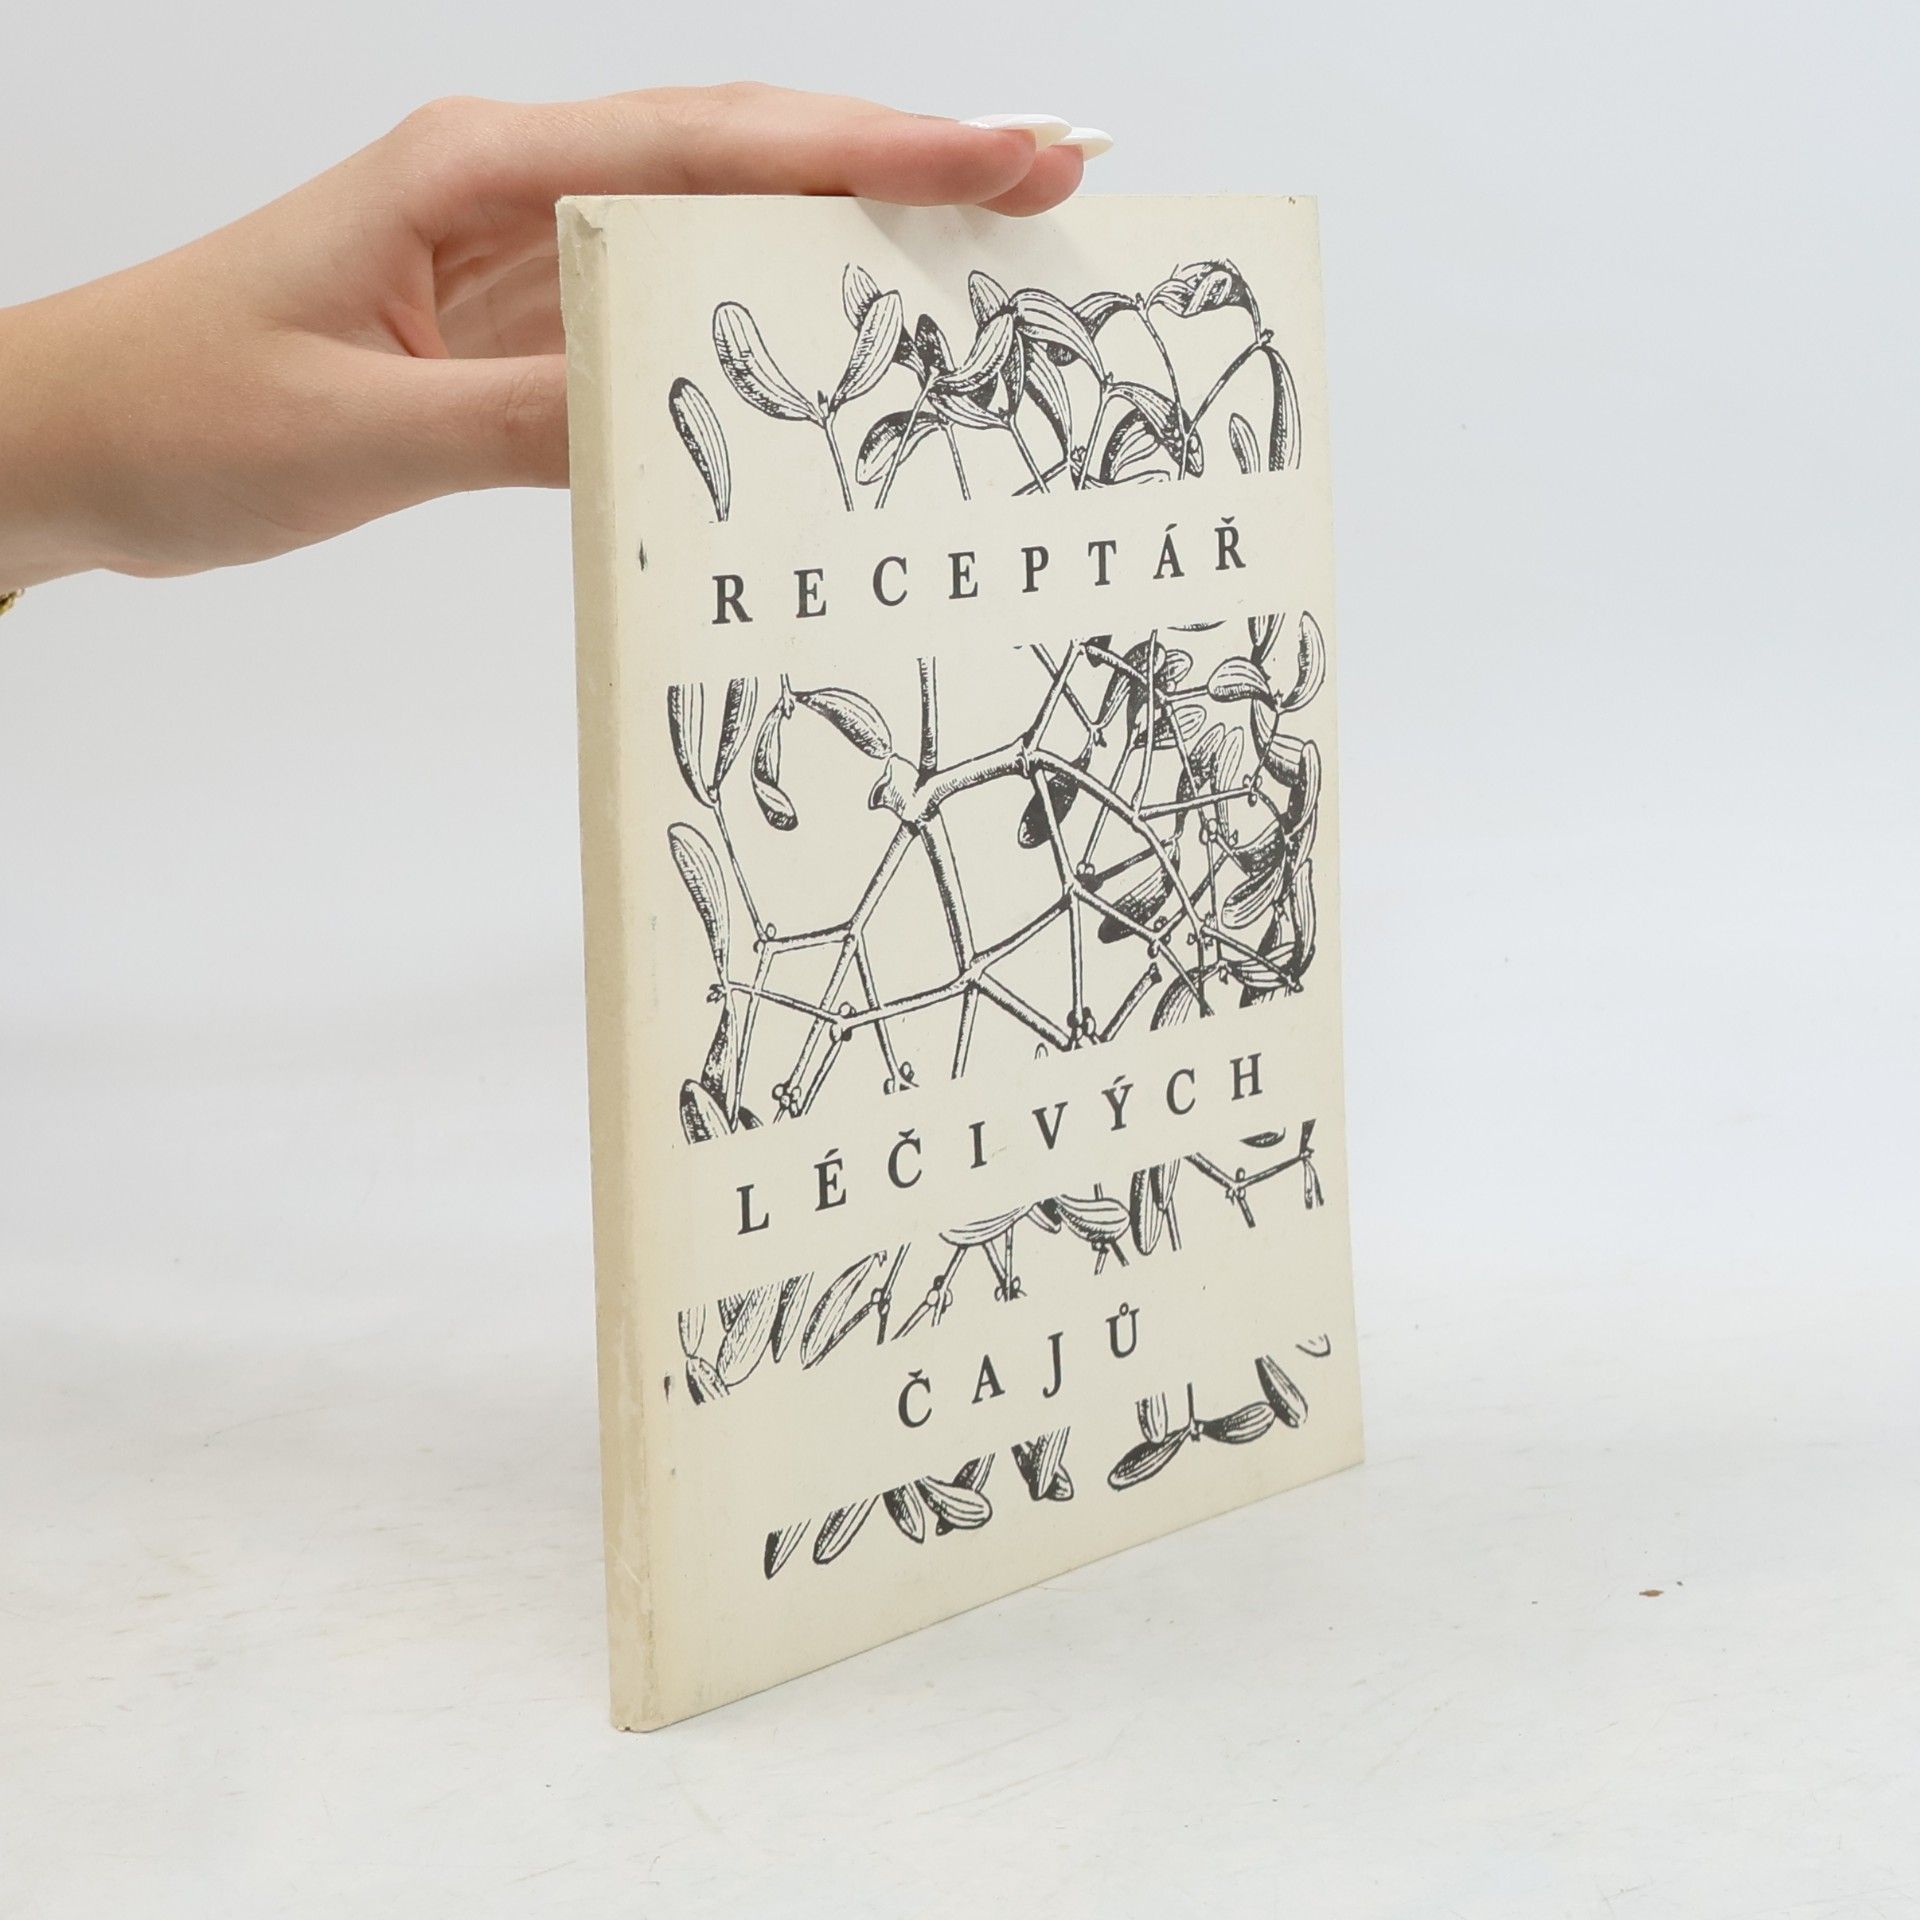 RECEPTÁŘ
LÉČIVÝCH
ČAJŮ